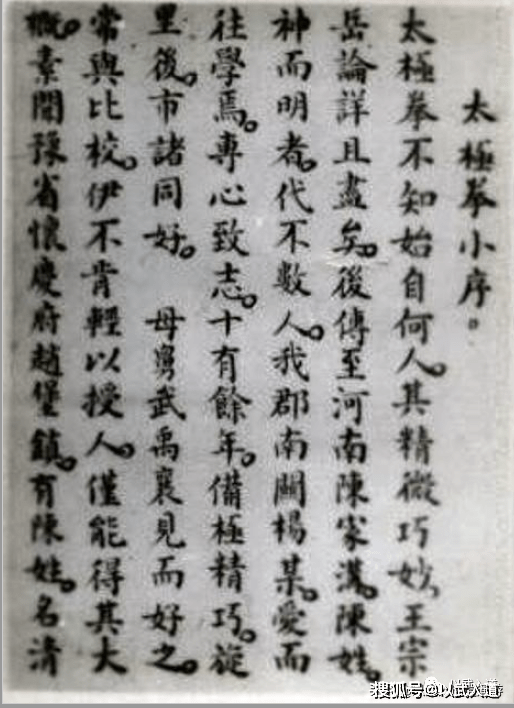 太極拳小序。
太極拳不知始自何人。其精微巧妙。王宗
岳論詳且盡矣。後傳至河南陳家溝。陳姓。
神而明者。代不數人。我郡南關楊某。愛而
往學焉。專心致志。十有餘年。備極精巧。旋
里後。市諸同好。　母舅武禹襄見而好之。
常與比校。伊不肯輕以授人。僅能得其大
概。素聞豫省懷慶府趙堡鎮。有陳姓。名清
搜狐号@以武入道